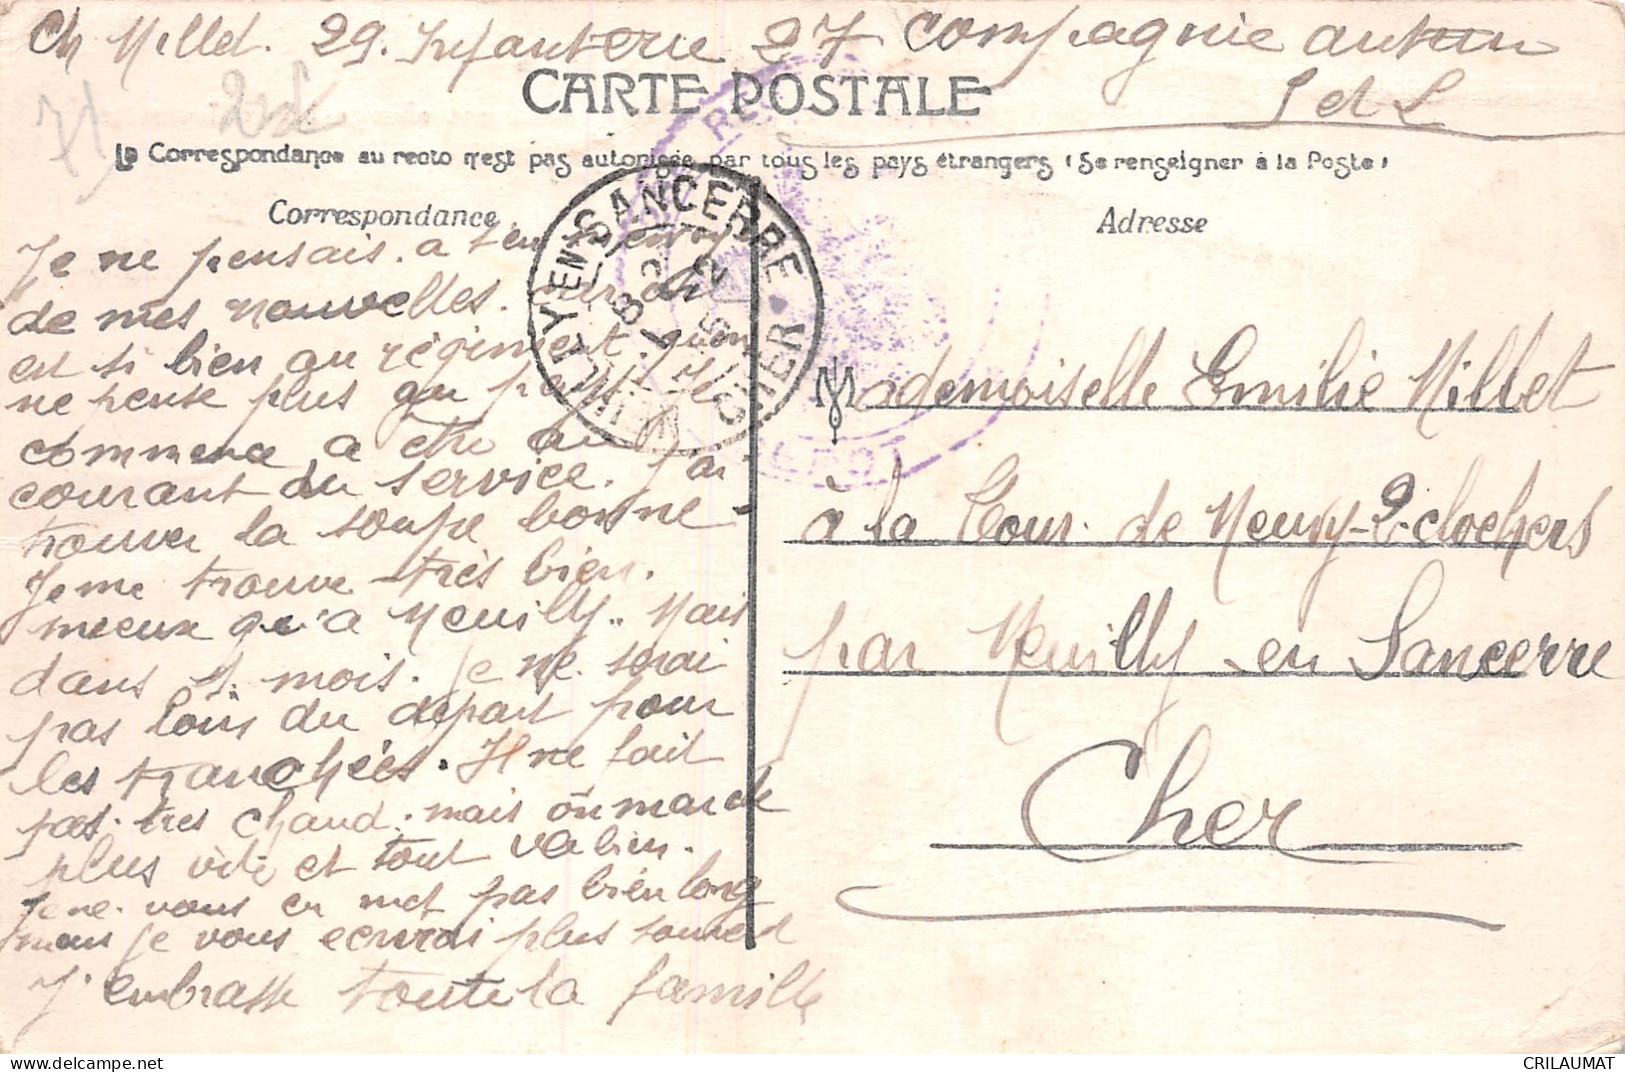 Ch Millet. 29. Infanterie 27 compagnie autun
S et L
71
CARTE POSTALE
La Correspondance au recto n'est pas autorisée par tous les pays étrangers (Se renseigner à la Poste)
Correspondance
Je ne pensais. a t'en
de mes nouvelles.
est si bien au régiment. qu'on
ne pense plus au pays. Je
commence a etre au
courant du service. J'ai
trouver la soupe bonne
Je me trouve très bien.
mieux qu'a Neuilly.. Mais
dans mois. je ne serai
pas loin du depart pour
les tranchées. Il ne fait
pas. tres chaud. mais on marche
plus vite et tout va bien.
Je ne. vous en met pas bien long
mais je vous ecrirai plus souvent
J'embrasse toute la famille
NEUILLY EN SANCERRE
CHER
Adresse
Mademoiselle Emilie Millet
à la Cour. de Neuvy-2-clochers
par Neuilly en Sancerre
Cher
CRILAUMAT
delcampe.net